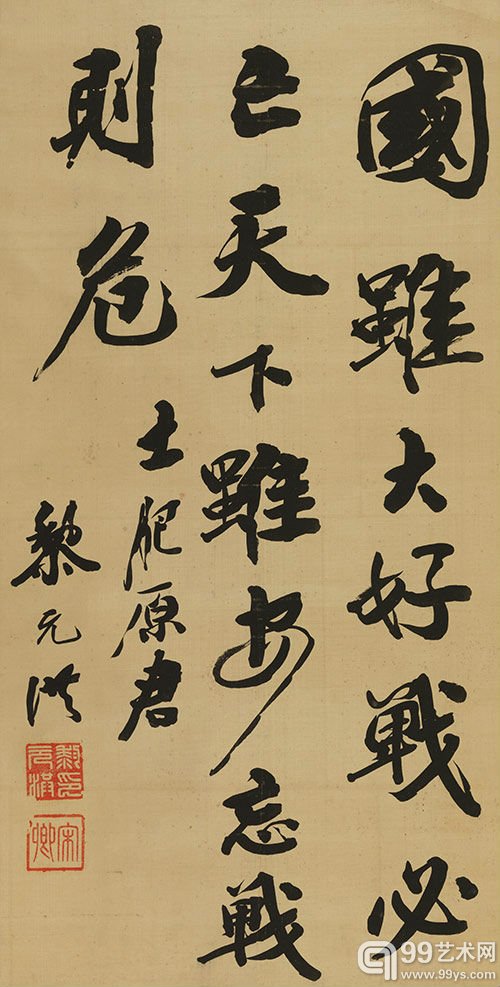 國雖大好戰必
亡天下雖安忘戰
則危
土肥原君
黎元洪
黎元洪印
宋卿
99艺术网
www.99ys.com